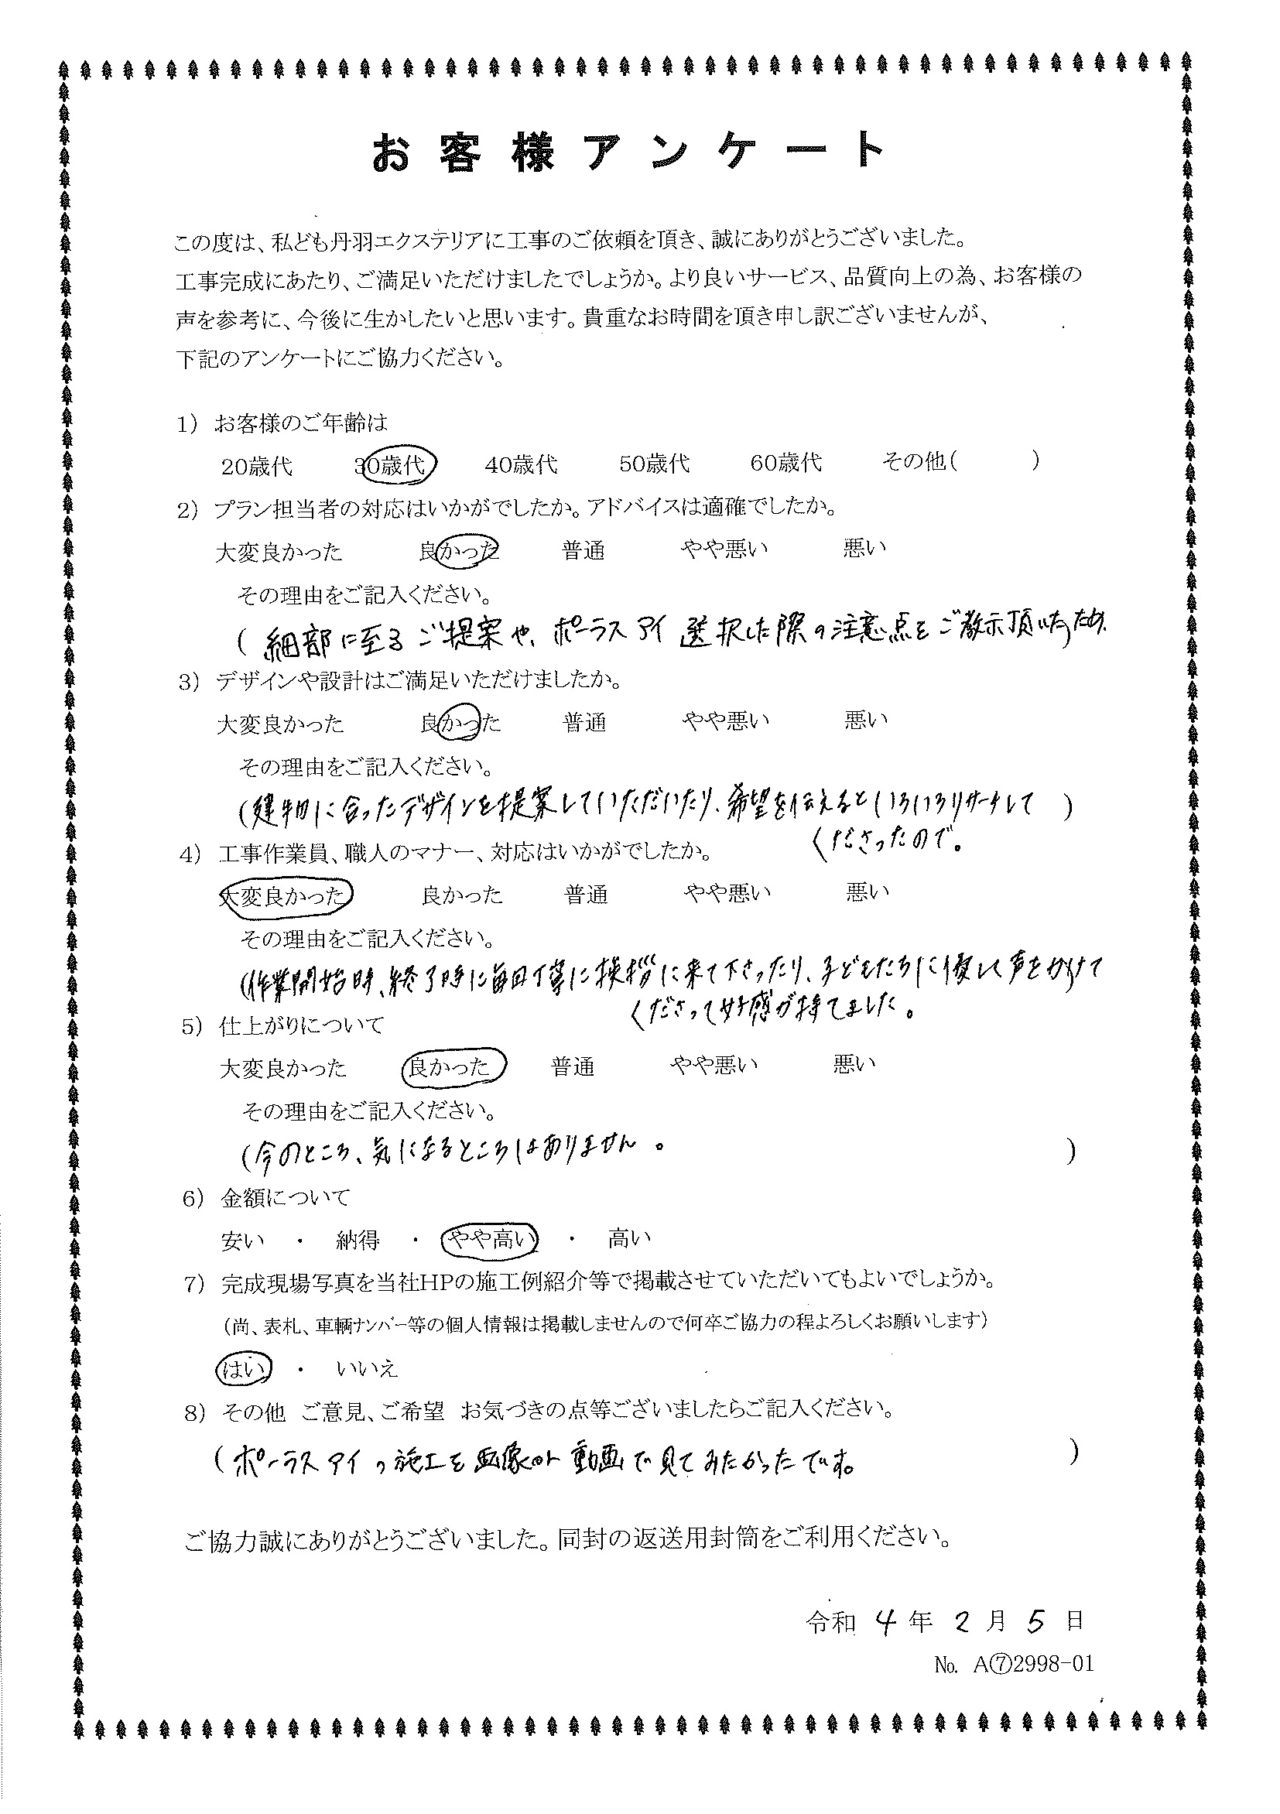 お客様アンケート
この度は、私ども丹羽エクステリアに工事のご依頼を頂き、誠にありがとうございました。
工事完成にあたり、ご満足いただけましたでしょうか。より良いサービス、品質向上の為、お客様の
声を参考に、今後に生かしたいと思います。貴重なお時間を頂き申し訳ございませんが、
下記のアンケートにご協力ください。
1) お客様のご年齢は
20歳代 30歳代 40歳代 50歳代 60歳代 その他( )
2) プラン担当者の対応はいかがでしたか。アドバイスは適確でしたか。
大変良かった 良かった 普通 やや悪い 悪い
その理由をご記入ください。
(細部に至るご提案や、ポーラスアイ選択した際の注意点をご教示頂いたため
3) デザインや設計はご満足いただけましたか。
大変良かった 良かった 普通 やや悪い 悪い
その理由をご記入ください。
(建物に合ったデザインを提案していただいたり、希望を伝えるといろいろリサーチして )
くださったので。
4) 工事作業員、職人のマナー、対応はいかがでしたか。
大変良かった 良かった 普通 やや悪い 悪い
その理由をご記入ください。
(作業開始時、終了時に毎回丁寧に挨拶に来て下さったり、子どもたちに優しく声をかけて
くださって好感が持てました。
5) 仕上がりについて
大変良かった 良かった 普通 やや悪い 悪い
その理由をご記入ください。
(今のところ、気になるところはありません。 )
6) 金額について
安い ・ 納得 ・ やや高い ・ 高い
7) 完成現場写真を当社HPの施工例紹介等で掲載させていただいてもよいでしょうか。
(尚、表札、車輌ナンバー等の個人情報は掲載しませんので何卒ご協力の程よろしくお願いします)
はい ・ いいえ
8) その他 ご意見、ご希望 お気づきの点等ございましたらご記入ください。
(ポーラスアイの施工を画像or動画で見てみたかったです。 )
ご協力誠にありがとうございました。同封の返送用封筒をご利用ください。
令和 4 年 2 月 5 日
No. A⑦2998-01